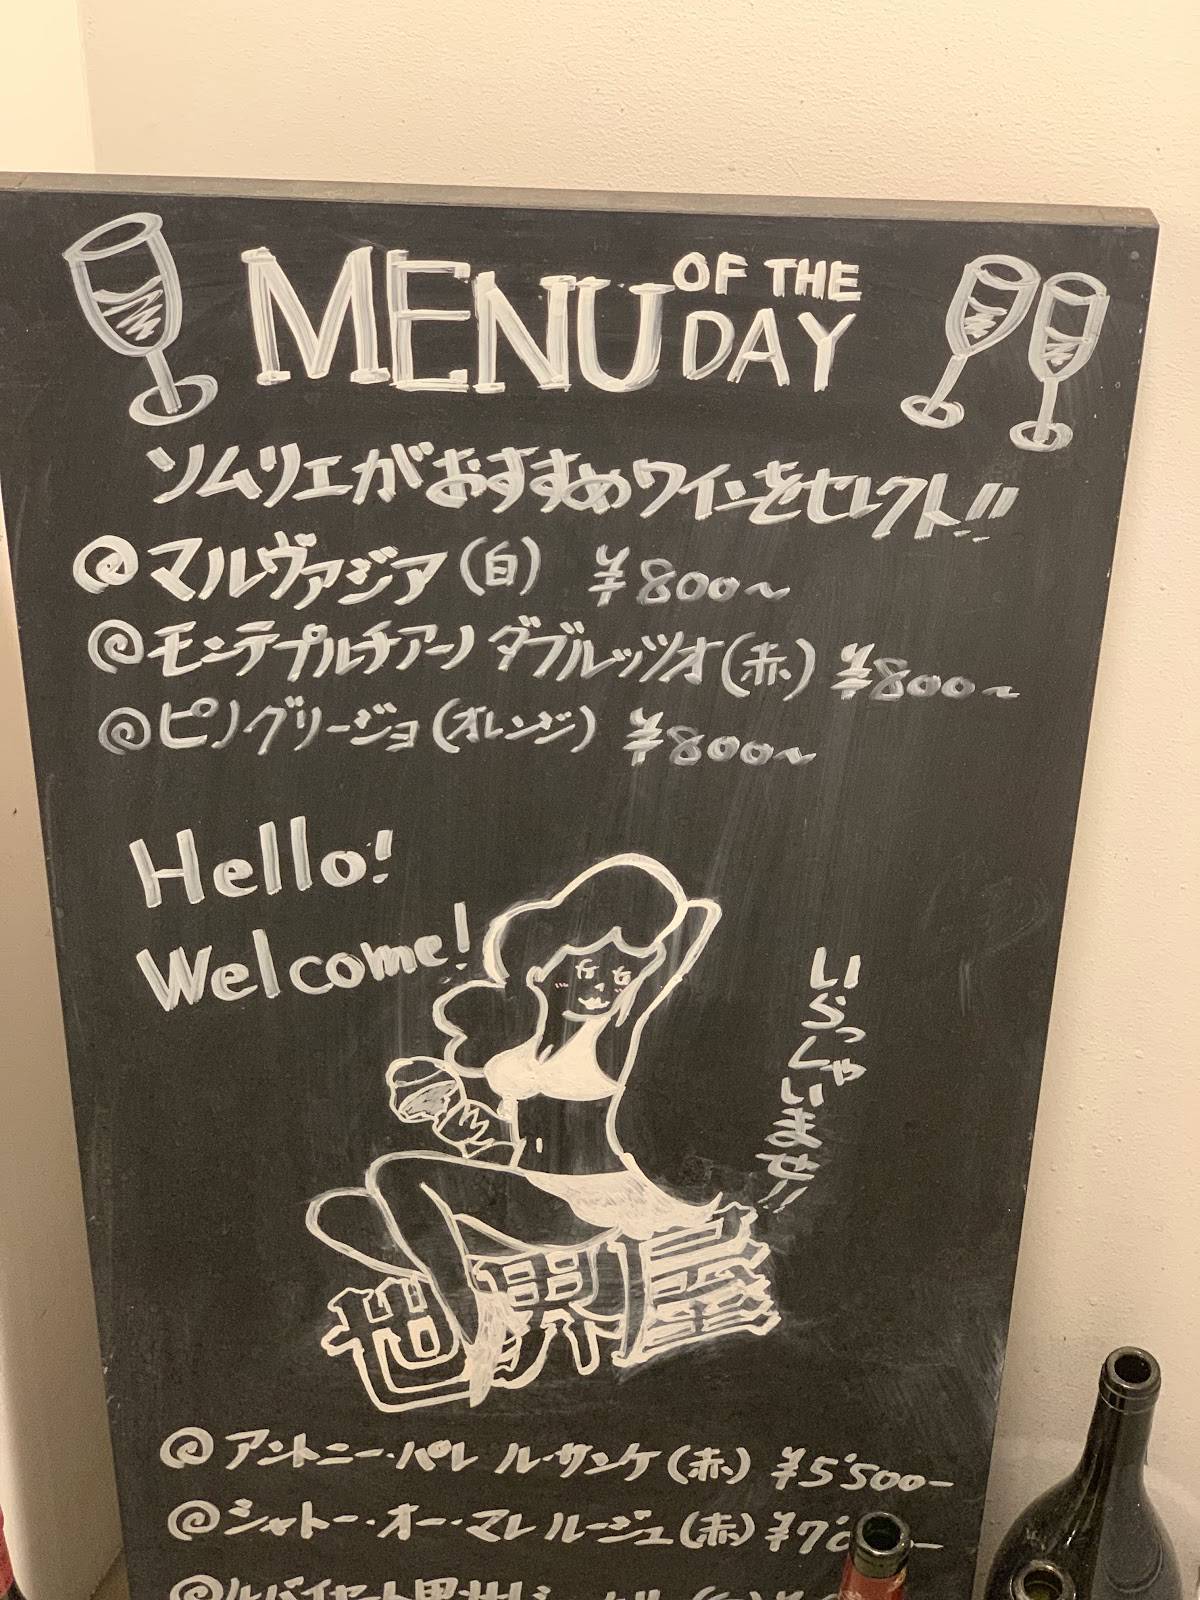 MENU OF THE DAY
ソムリエがおすすめワインをセレクト!!
マルヴァジア(白) ¥800~
モンテプルチアーノ ダブルッツオ(赤) ¥800~
ピノグリージョ(オレンジ) ¥800~
Hello!
Welcome!
いらっしゃいませ!!
世界
アントニー・パレ ル・サンケ(赤) ¥5'500-
シャトー・オー・マレ ルージュ(赤) ¥7'
ルバイヤート甲州